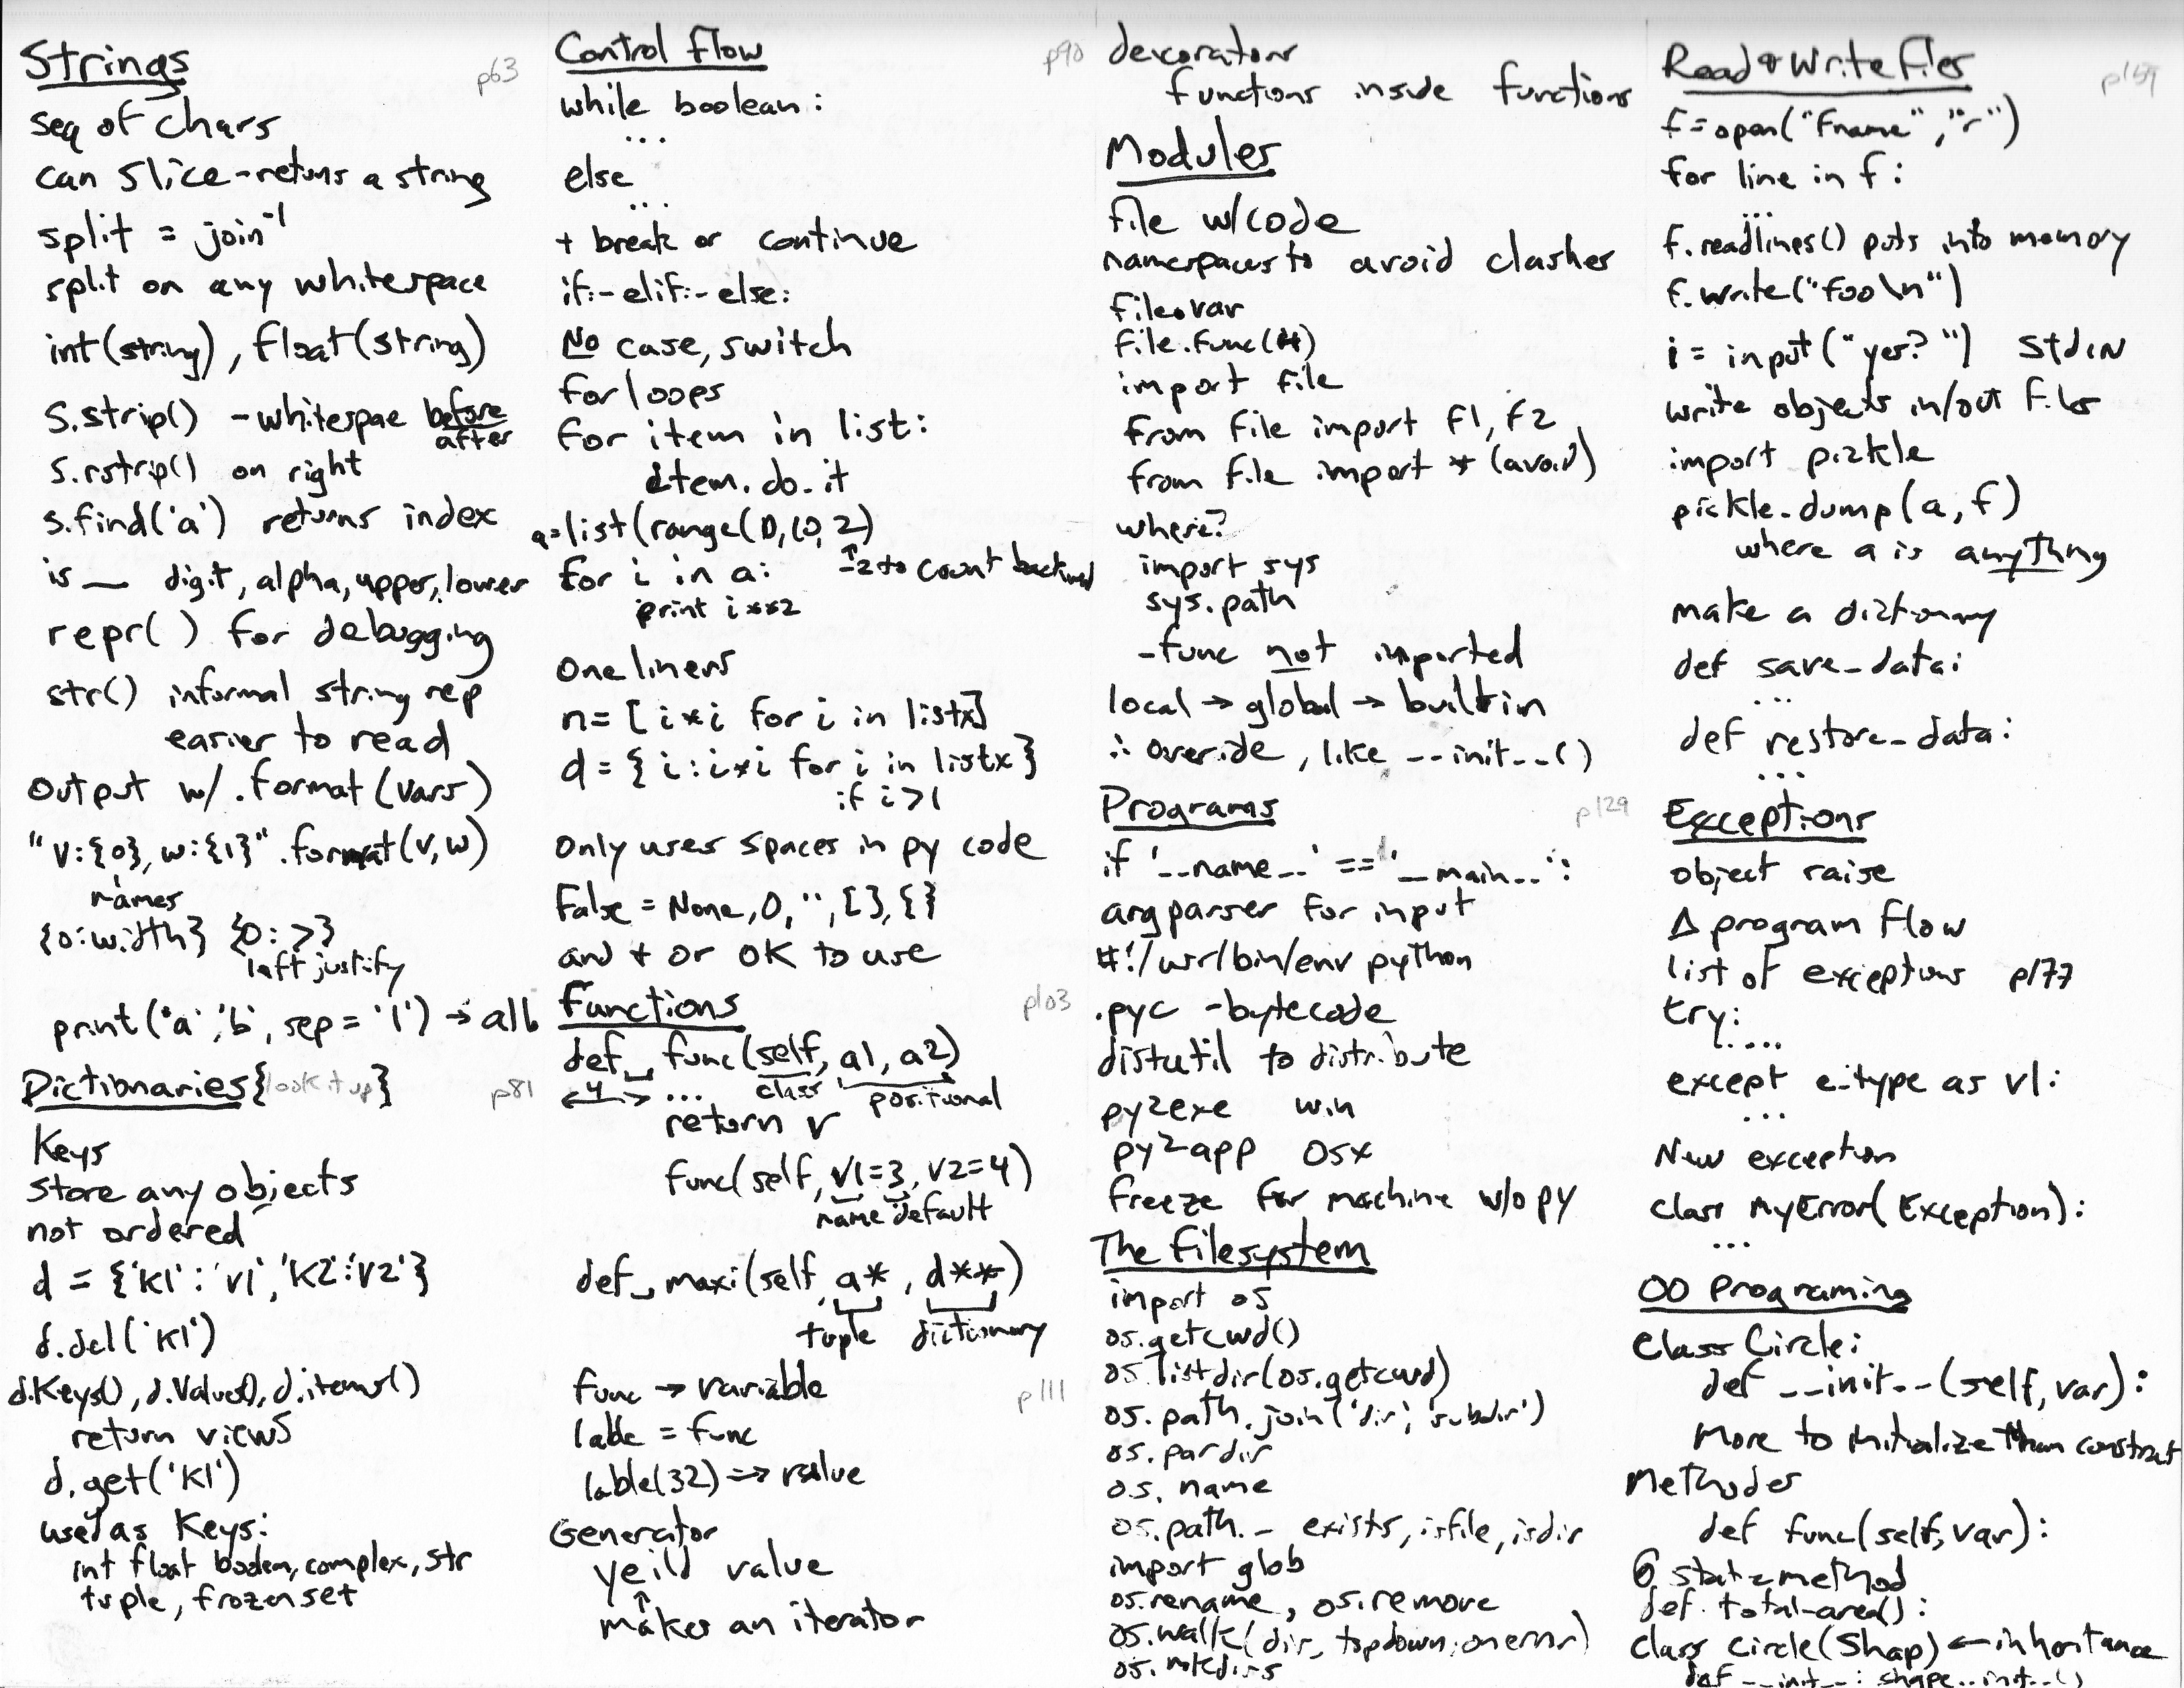 Strings p63
seq of chars
can slice - returns a string
split = join⁻¹
split on any whitespace
int(string), float(string)
S.strip() - whitespae before
after
S.rstrip() on right
s.find('a') returns index
is __ digit, alpha, upper, lower
repr( ) for debugging
str() informal string rep
easier to read
Output w/ .format(vars)
"v:{0}, w:{1}" .format(v,w)
names
{0:width} {0:>}
left justify
print('a' 'b', sep = '|') → a|b
Dictionaries {look it up} p81
Keys
store any objects
not ordered
d = {'k1' : 'v1', 'k2':'v2'}
d.del('k1')
d.keys(), d.values(), d.items()
return views
d.get('k1')
used as keys:
int float boolean, complex, str
tuple, frozenset
Control Flow
while boolean :
...
else
...
+ break or continue
if:- elif:- else:
No case, switch
for loops
for item in list:
item.do.it
a=list(range(0,10,2)
↑
-2 to count backward
for i in a:
print i**2
One liners
n= [ i*i for i in listx]
d = { i : i*i for i in listx }
if i>1
Only uses spaces in py code
False = None, 0, '', [], {}
and + or OK to use
Functions p103
def␣ func(self, a1, a2)
class positional
← 4 → ...
return v
func(self, v1=3, v2=4)
name default
def␣ maxi(self, a* , d**)
tuple dictionary
func → variable p111
lable = func
lable(32) => value
Generator
yeild value
↑
makes an iterator
p90 decorators
functions inside functions
Modules
file w/code
namespaces to avoid clashes
file.var
file.func(#)
import file
from file import f1, f2
from file import * (avoid)
where?
import sys
sys.path
-func not imported
local → global → builtin
∴ override, like __init__()
Programs p129
if '__name__' == '__main__':
argparser for input
#!/usr/bin/env python
.pyc - bytecode
distutil to distribute
py2exe win
py2app OSX
freeze for machine w/o py
The Filesystem
import os
os.getcwd()
os.listdir(os.getcwd)
os.path.join('dir', 'subdir')
os.pardir
os.name
os.path._ exists, isfile, isdir
import glob
os.rename, os.remove
os.walk(dir, topdown, onerror)
os.mkdirs
Read & Write Files p159
f=open("Fname","r")
for line in f :
...
f.readlines() puts into memory
f.write("foo\n")
i = input("yes? ") STDIN
write objects in/out files
import pickle
pickle.dump(a, f)
where a is anything
make a dictionary
def save_data:
...
def restore_data:
...
Exceptions
object raise
Δ program flow
list of exceptions p177
try:
....
except e.type as v1:
...
New exception
class MyError(Exception):
...
OO Programing
Class Circle:
def __init__(self, var):
More to initialize than construct
Methodes
def func(self, var):
@ static method
def total-area():
class Circle(Shap) ← inheritance
def __init__: shape.init__()